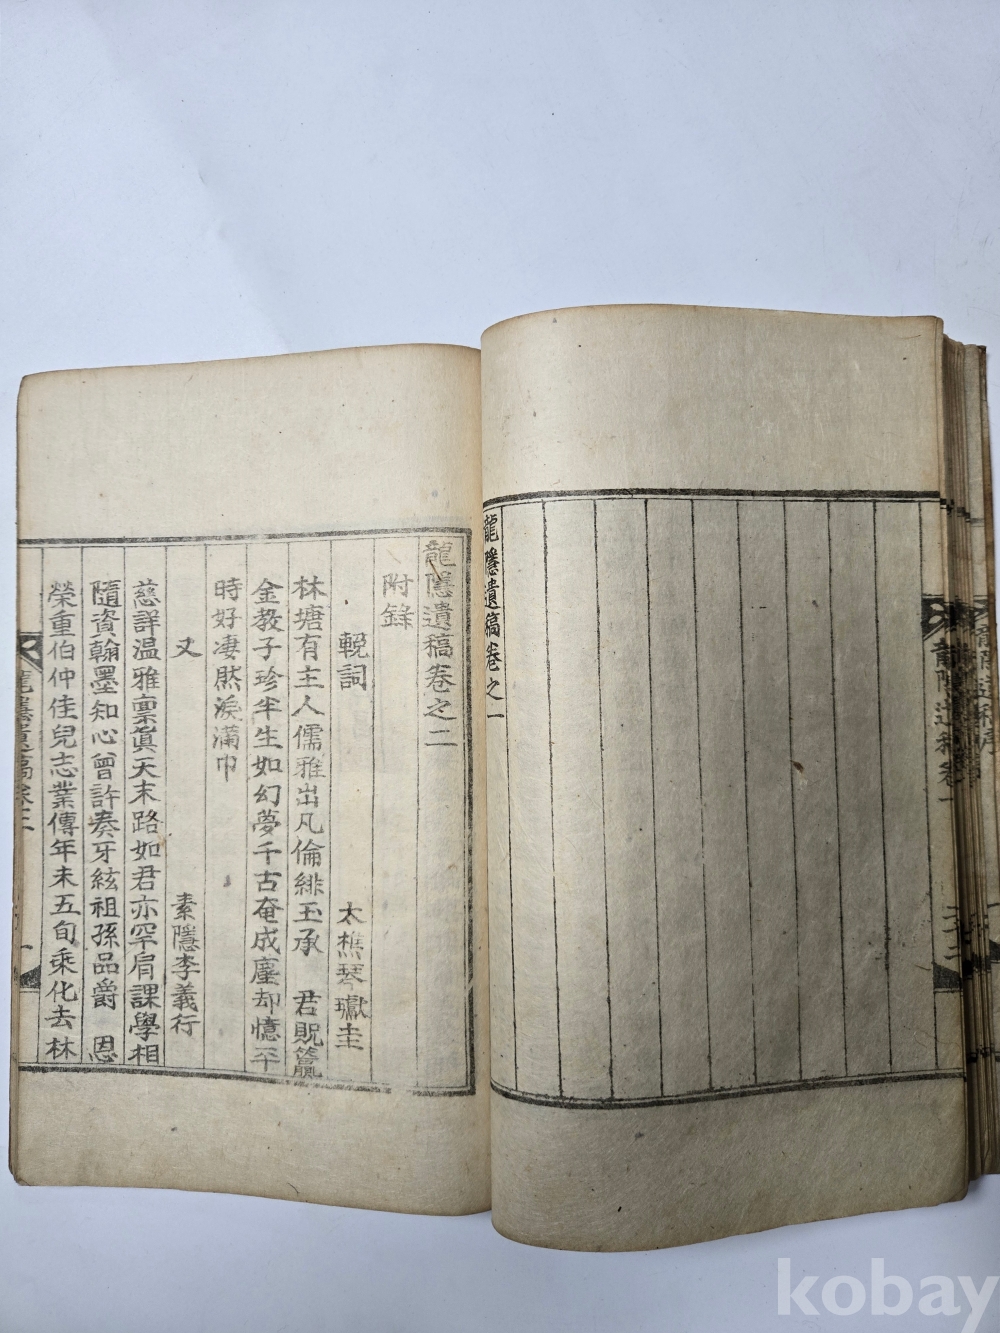 龍隱遺稿卷之一
龍隱遺稿卷之二
附錄
輓詞
太樵琴瓛圭
林塘有主人儒雅出凡倫緋玉承 君貺籯
金敎子珍半生如幻夢千古奄成塵却憶平
時好凄然淚滿巾
又
素隱李義行
慈詳溫雅稟眞天末路如君亦罕肩課學相
隨資翰墨知心曾許奏牙絃祖孫品爵 恩
榮重伯仲佳兒志業傳年未五旬乘化去林
龍隱遺稿卷一
龍隱遺稿卷二
一
kobay